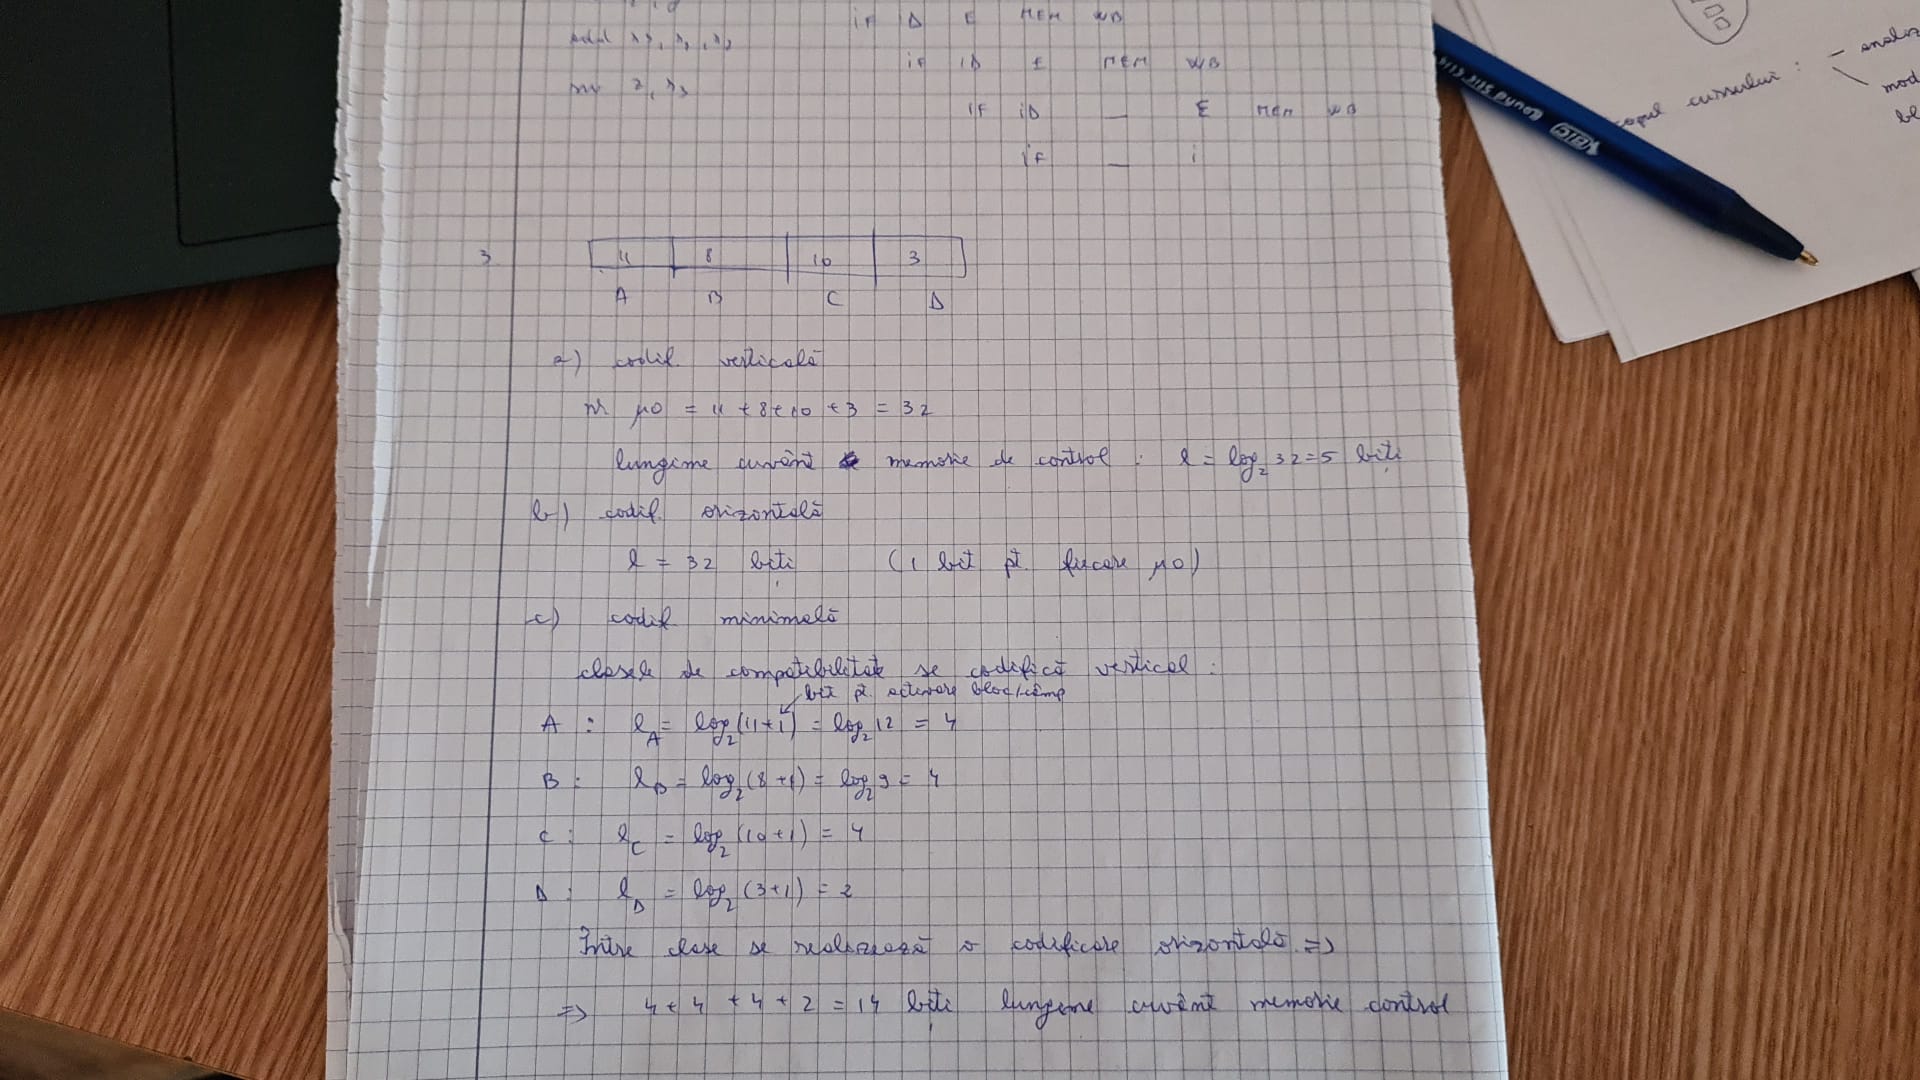 add r3, r1, r2
sw z, r3
IF ID E MEM WB
IF ID E MEM WB
IF ID — E MEM WB
IF — i
3
11 8 10 3
A B C D
a) codif. verticală
nr μo = 11 + 8 + 10 + 3 = 32
lungime cuvânt memorie de control : l = log₂ 32 = 5 biți
b) codif. orizontală
l = 32 biți (1 bit pt. fiecare μo)
c) codif minimală
clasele de compatibilitate se codifică vertical :
bit pt. activare bloc/câmp
A : l_A = log₂(11+1) = log₂12 = 4
B : l_B = log₂(8+1) = log₂9 = 4
C : l_C = log₂(10+1) = 4
D : l_D = log₂(3+1) = 2
Între clase se realizează o codificare orizontală =>
=> 4 + 4 + 4 + 2 = 14 biți lungime cuvânt memorie control
scopul cursului : – analiz
mod
bl
BIC